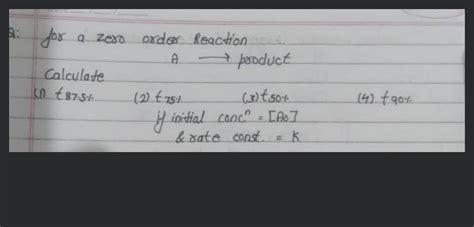 Q: for a zero order Reaction
A → product
Calculate
(1) t87.5% (2) t75% (3) t50% (4) t90%
if initial concⁿ = [A0]
& rate const. = K